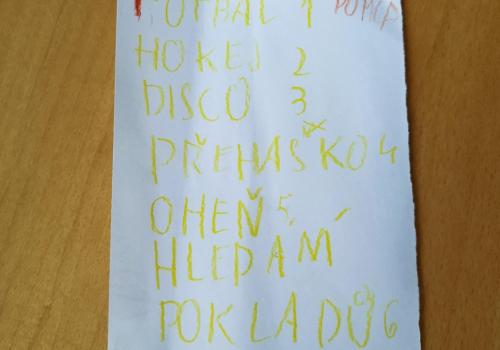 FOTBAL 1
HOKEJ 2
DISCO 3
PŘEHAŠKO 4
OHEŇ 5
HLEDÁNÍ
POKLADŮ 6